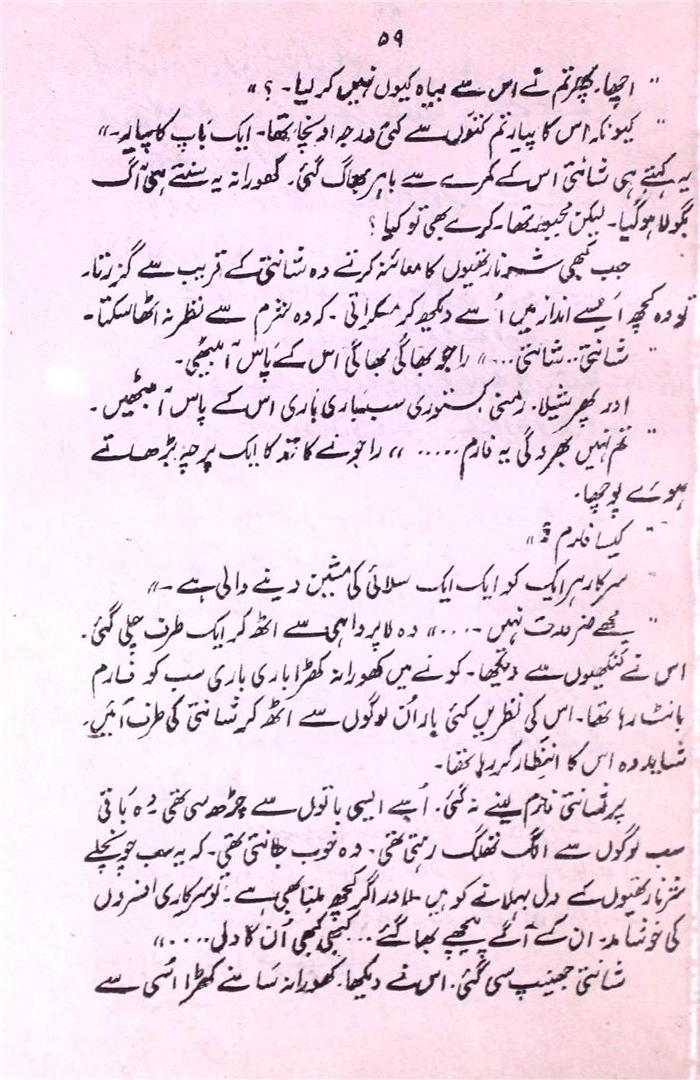 ۵۹
" اچھا۔ پھر تم نے اس سے بیاہ کیوں نہیں کر لیا۔ ؟ "
" کیونکہ اس کا پیار تم کتوں سے کئی درجہ اونچا تھا۔ ایک باپ کا پیار۔ "
یہ کہتے ہی شانتی اس کے کمرے سے باہر بھاگ گئی۔ کھورانہ یہ سنتے ہی آگ
بگولا ہو گیا۔ لیکن مجبور تھا۔ کرے بھی تو کیا ؟
جب کبھی شرنارتھیوں کا معائنہ کرنے وہ شانتی کے قریب سے گزرتا۔
تو وہ کچھ ایسے انداز میں اُسے دیکھ کر مسکراتی ۔ کہ وہ شرم سے نظر نہ اٹھا سکتا۔
" شانتی.. شانتی... " راجو بھاگی بھاگی اس کے پاس آ بیٹھی۔
اور پھر شیلا۔ رمنی کستوری سب باری باری اس کے پاس آ بیٹھیں۔
" تم نہیں بھرو گی یہ فارم ..... " راجو نے کاغذ کا ایک پرچہ بڑھاتے
ہوئے پوچھا۔
" کیسا فارم ؟ "
" سرکار ہر ایک کو ایک ایک سلائی کی مشین دینے والی ہے ۔ "
" مجھے ضرورت نہیں ۔ ... " وہ لاپرواہی سے اٹھ کر ایک طرف چلی گئی۔
اس نے کنکھیوں سے دیکھا۔ کونے میں کھورانہ کھڑا باری باری سب کو فارم
بانٹ رہا تھا۔ اس کی نظریں کئی بار اُن لوگوں سے اٹھ کر شانتی کی طرف آئیں۔
شاید وہ اس کا انتظار کر رہا تھا۔
پر شانتی فارم لینے نہ گئی۔ اُسے ایسی باتوں سے چڑھ سی تھی وہ باقی
سب لوگوں سے الگ تھلگ رہتی تھی۔ وہ خوب جانتی تھی۔ کہ یہ سب چونچلے
شرنارتھیوں کے دل بہلانے کو ہیں اور اگر کچھ ملنا بھی ہے۔ تو سرکاری افسروں
کی خوشامد۔ ان کے آگے پیچھے بھاگے ... کبھی کبھی اُن کا دل .... "
شانتی جھینپ سی گئی۔ اس نے دیکھا۔ کھورانہ سامنے کھڑا اُسی سے